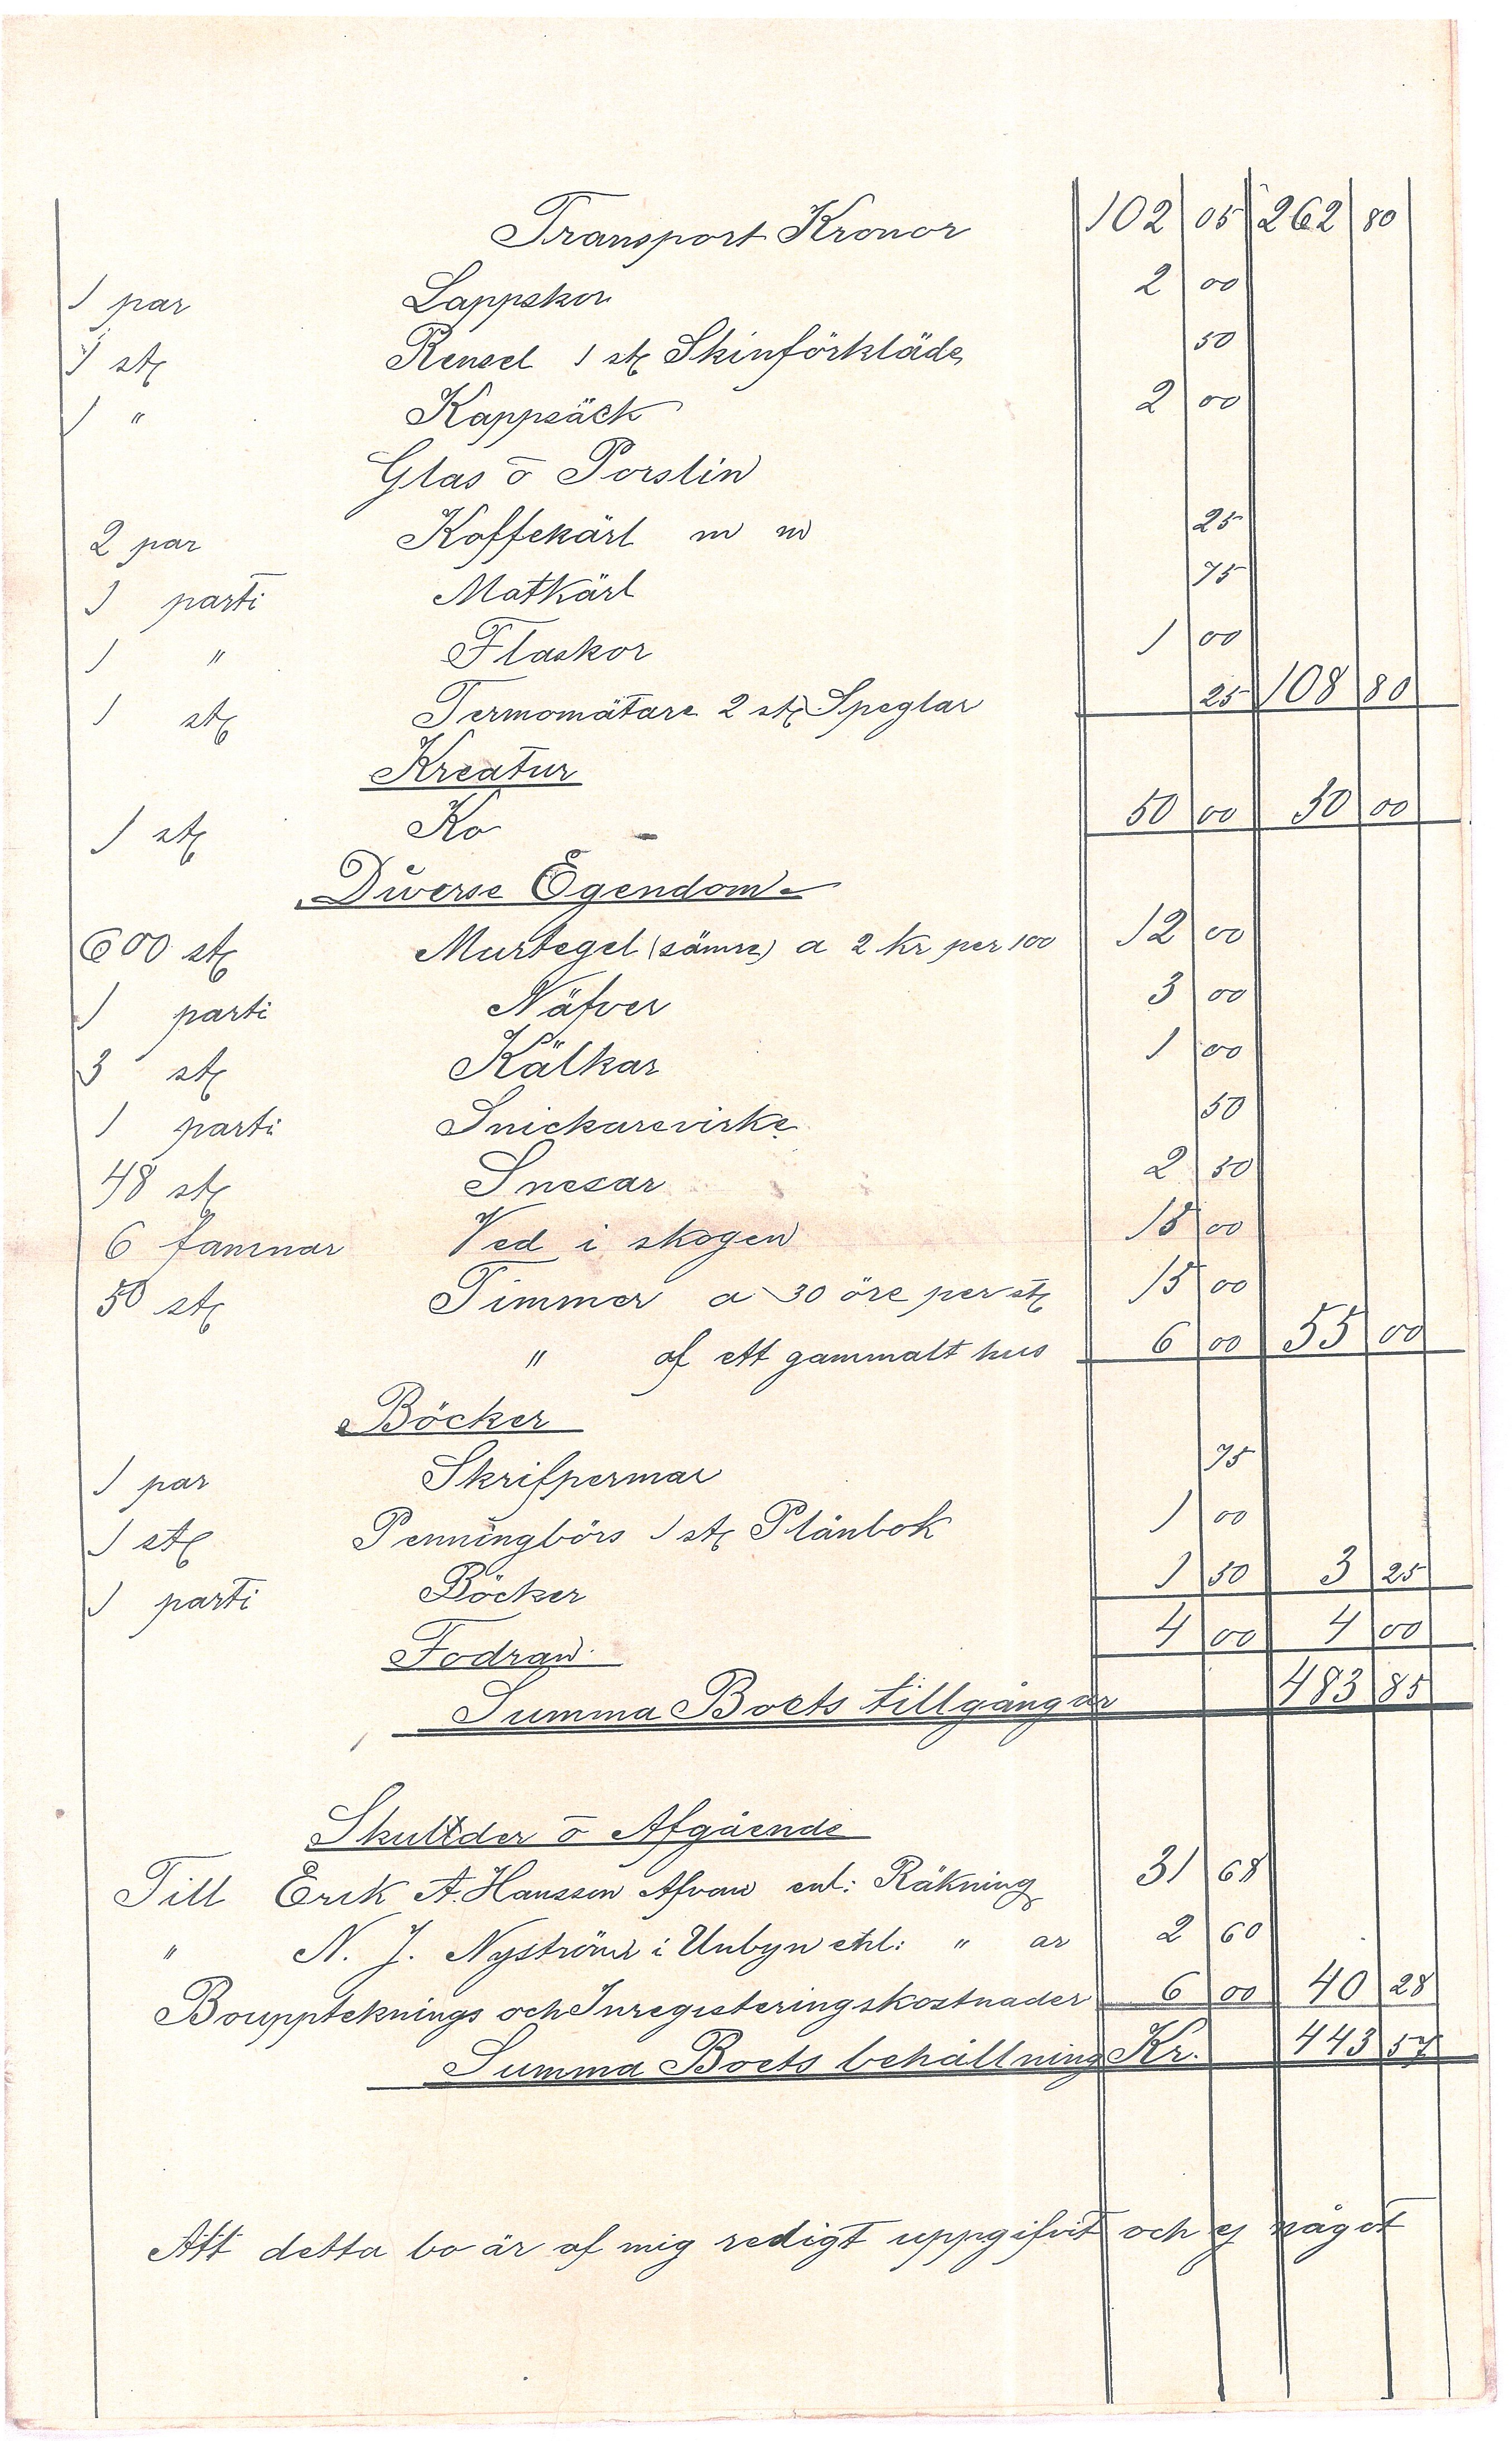 Transport Kronor 102 05 262 80
1 par Lappskor 2 00
1 st Rensel 1 st Skinförkläde 50
1 " Kappsäck 2 00
Glas o Porslin
2 par Koffekärl m m 25
1 parti Matkärl 75
1 " Flaskor 1 00
1 st Termomätare 2 st Speglar 25 108 80
Kreatur
1 st Ko 50 00 50 00
Diverse Egendom
600 st Murtegel (sämre) a 2 kr per 100 12 00
1 parti Näfver 3 00
3 st Kälkar 1 00
1 parti Snickarevirke 50
48 st Snesar 2 50
6 famnar Ved i skogen 15 00
50 st Timmer a 30 öre per st 15 00
" af ett gammalt hus 6 00 55 00
Böcker
1 par Skrifpermar 75
1 st Penningbörs 1 st Plånbok 1 00
1 parti Böcker 1 50 3 25
Fodran 4 00 4 00
Summa Boets tillgångar 483 85
Skulder o Afgående
Till Erik A. Hansson Afvan enl: Räkning 31 68
" N. J. Nyström i Unbyn enl: " ar 2 60
Bouppteknings och Inregisteringskostnader 6 00 40 28
Summa Boets behållning Kr. 443 57
Att detta bo är af mig redigt uppgifvit och ej något